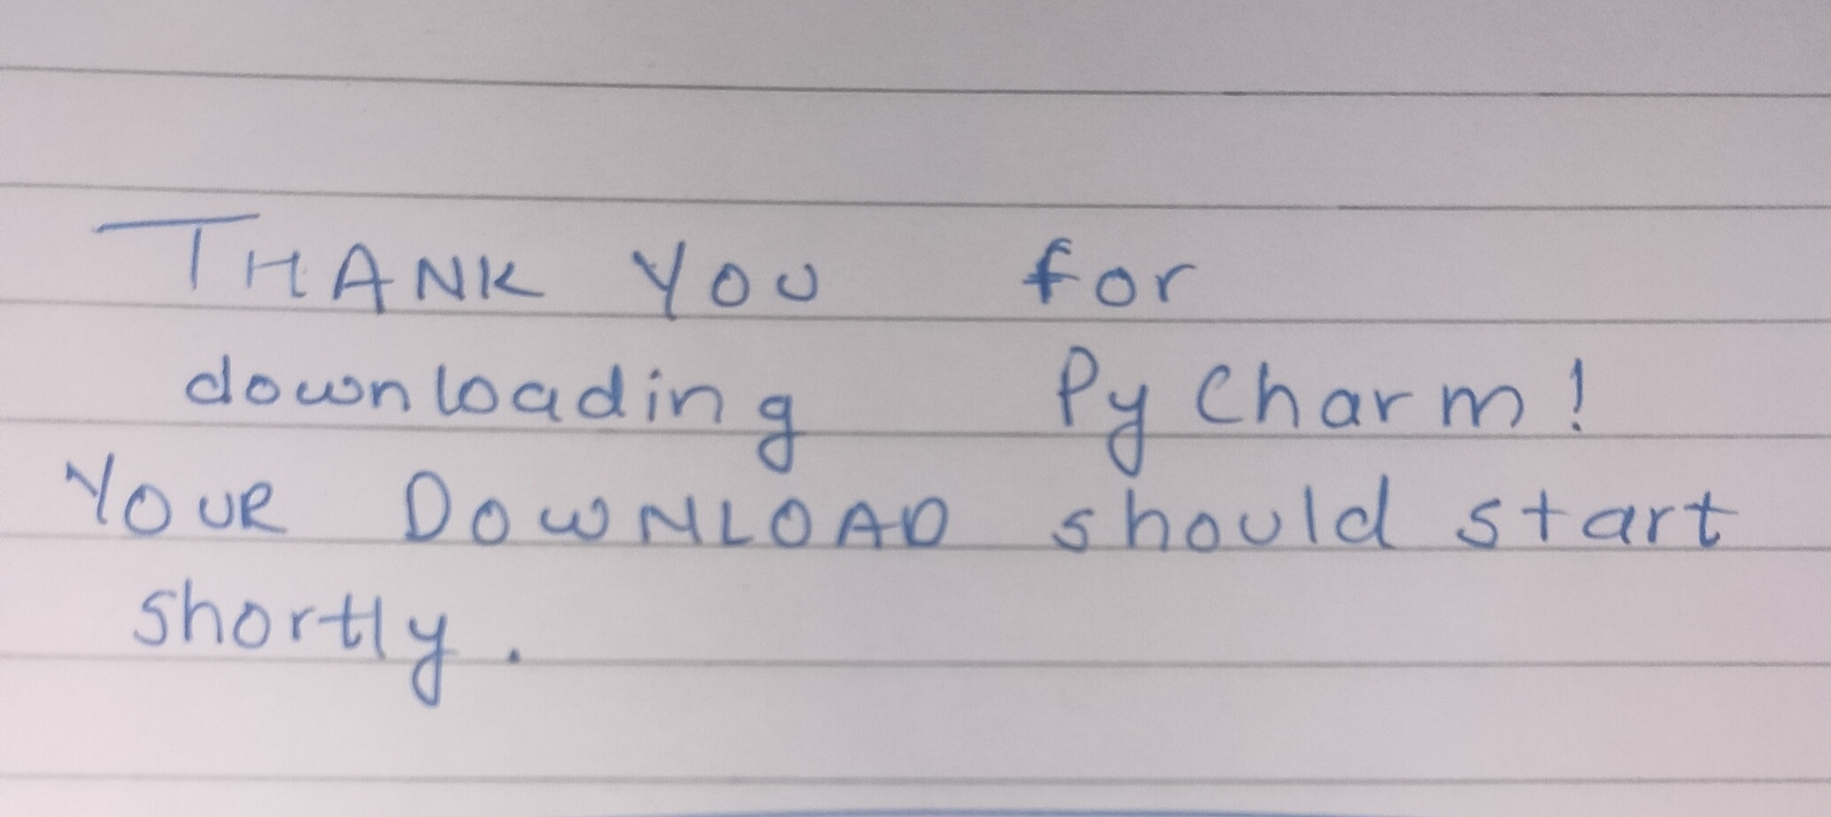 THANK YOU for
downloading PyCharm!
YOUR DOWNLOAD should start
shortly.